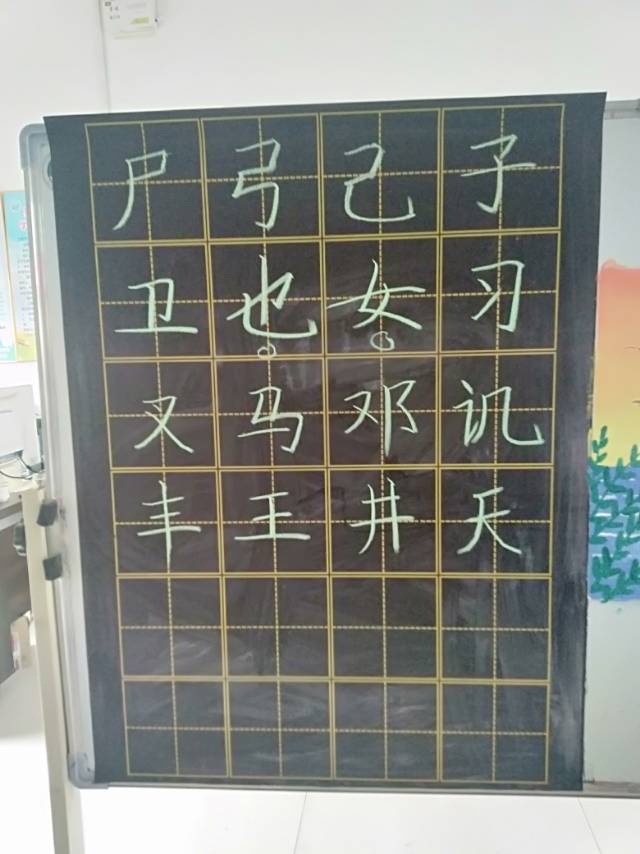 尸 弓 己 子
卫 也 女 习
叉 马 邓 讥
丰 王 井 天